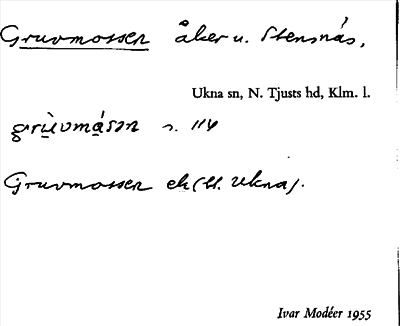 Gruvmossen åker u. Stensnäs,
Ukna sn, N. Tjusts hd, Klm. l.
grùvmåsən s. 114
Gruvmossen ek (bl. Ukna).
Ivar Modéer 1955